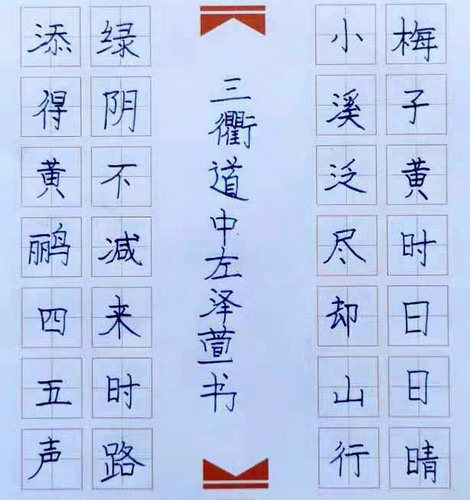 梅子黄时日日晴
小溪泛尽却山行
三衢道中左泽萱书
绿阴不减来时路
添得黄鹂四五声